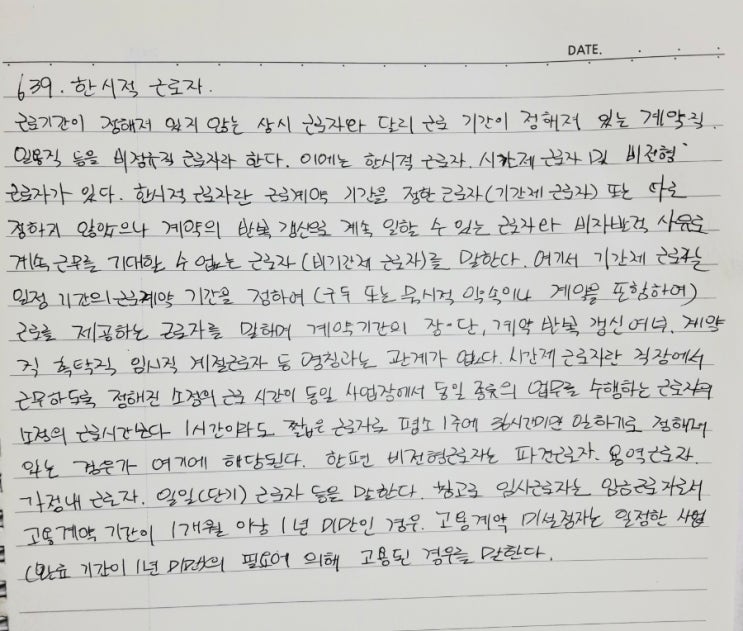 DATE.
639. 한시적 근로자.
근로기간이 정해져 있지 않는 상시 근로자와 달리 근로 기간이 정해져 있는 계약직.
일용직 등을 비정규직 근로자라 한다. 이에는 한시적 근로자. 시간제 근로자 및 비전형
근로자가 있다. 한시적 근로자란 근로계약 기간을 정한 근로자(기간제 근로자) 또는
정하지 않았으나 계약의 반복 갱신으로 계속 일할 수 있는 근로자와 비자발적 사유로
계속 근무를 기대할 수 없는 근로자(비기간제 근로자)를 말한다. 여기서 기간제 근로자는
일정 기간의 근로계약 기간을 정하여 (구두 또는 묵시적 약속이나 계약을 포함하여)
근로를 제공하는 근로자를 말하며 계약기간의 장·단, 계약 반복 갱신 여부, 계약
직 촉탁직 임시직 계절근로자 등 명칭과는 관계가 없다. 시간제 근로자란 직장에서
근무하도록 정해진 소정의 근로 시간이 동일 사업장에서 동일 종류의 업무를 수행하는 근로자의
소정의 근로시간보다 1시간이라도 짧은 근로자로 평소 1주에 36시간미만 일하기로 정해져
있는 경우가 여기에 해당된다. 한편 비전형근로자는 파견근로자. 용역근로자.
가정내 근로자. 일일(단기) 근로자 등을 말한다. 참고로 임시근로자는 임금근로자로서
고용계약 기간이 1개월 이상 1년 미만인 경우. 고용계약 미설정자는 일정한 사업
(완료 기간이 1년 미만)의 필요에 의해 고용된 경우를 말한다.